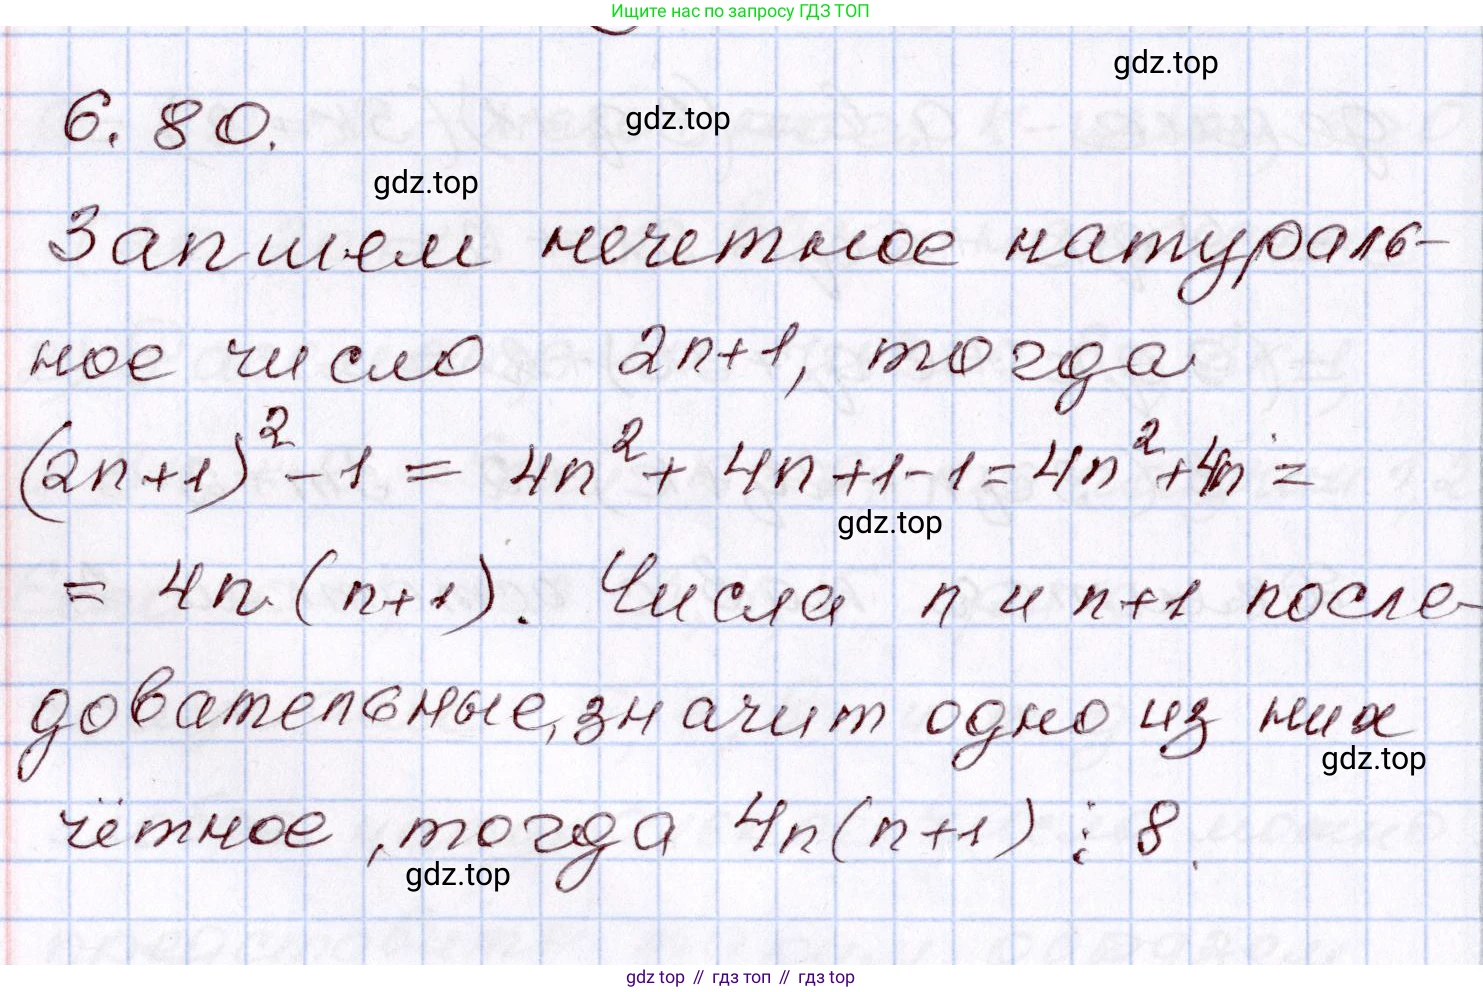 Ищите нас по запросу ГДЗ ТОП
gdz.top
6.80.
gdz.top
gdz.top
Запишем нечетное натураль-
ное число 2n+1, тогда
(2n+1)² - 1 = 4n² + 4n + 1 - 1 = 4n² + 4n =
gdz.top
= 4n·(n+1). Числа n и n+1 после-
довательные, значит одно из них
gdz.top
чётное, тогда 4n(n+1) ⋮ 8.
gdz.top
gdz top // гдз топ // гдз top